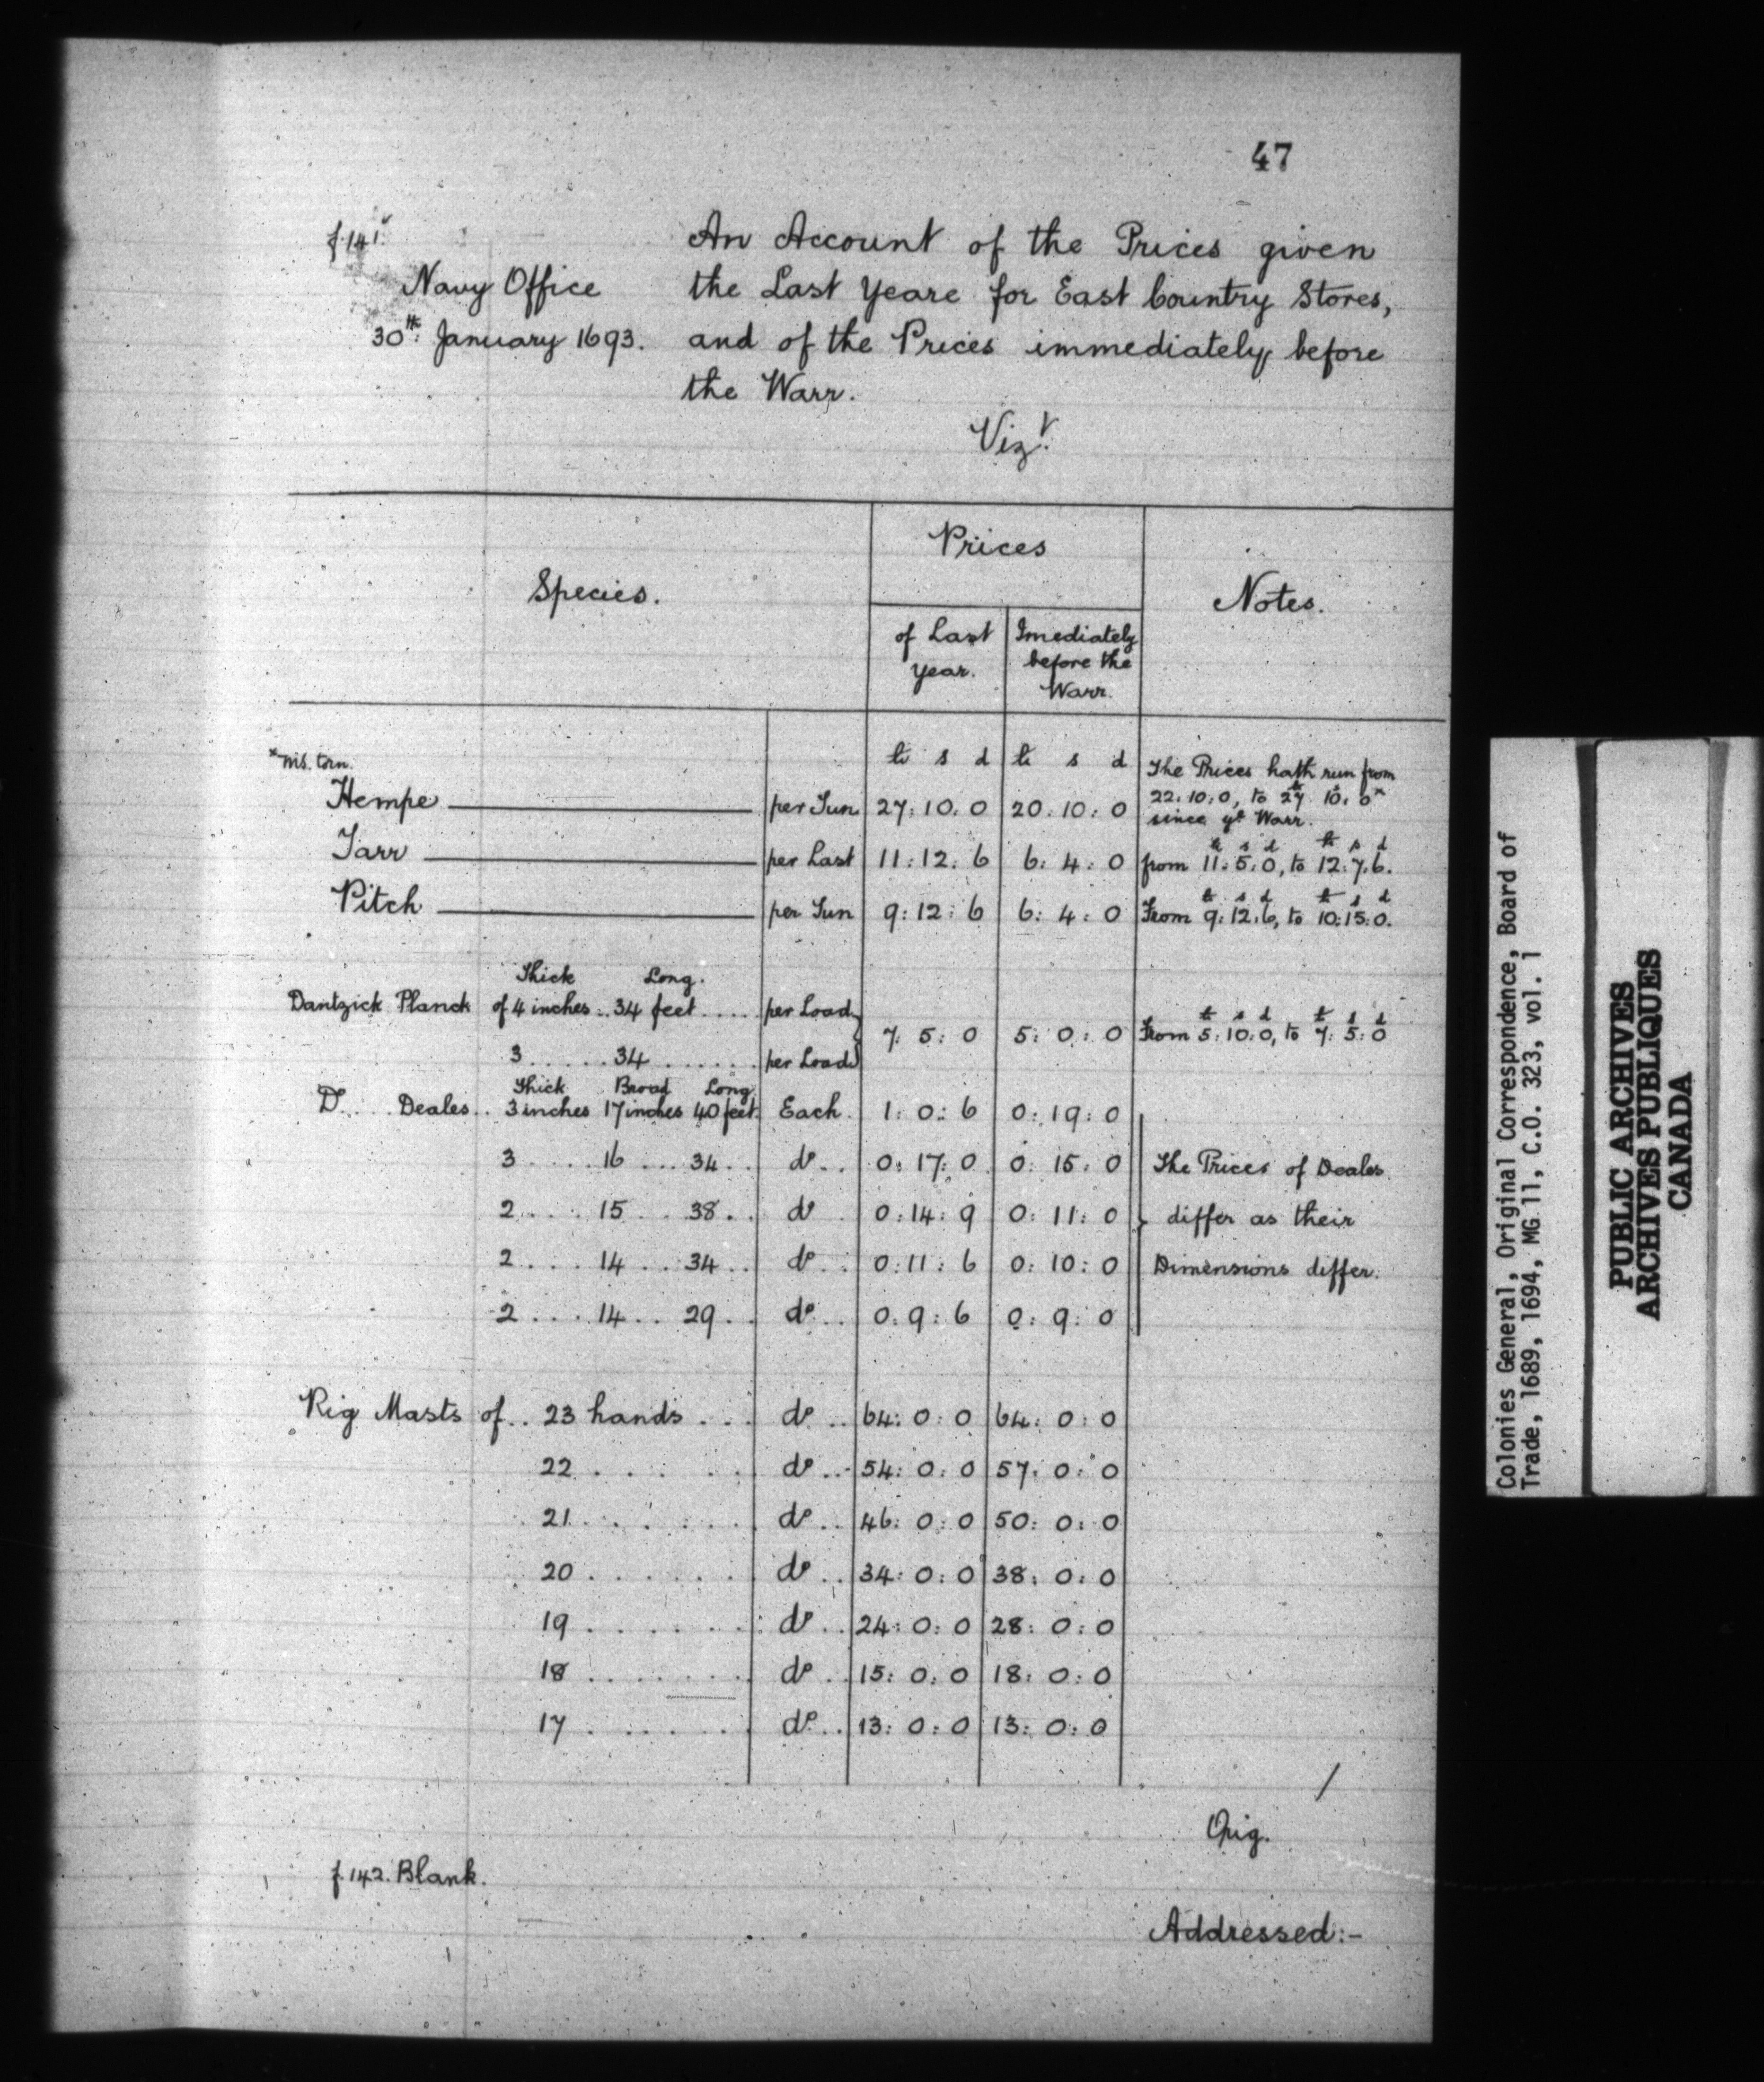 47
f.141.
An Account of the Prices given
Navy Office the Last Yeare for East Country Stores,
30th: January 1693. and of the Prices immediately before
the Warr.
Vizt.
Species. Prices Notes.
of Last Year. Imediately before the Warr.
*MS. torn.
li s d li s d The Prices hath run from
Hempe per Tun 27:10:0 20:10:0 22:10:0, to 27 10: 0*
since ye Warr.
li s d li s d
Tarr per Last 11:12:6 6:4:0 from 11:5:0, to 12:7:6.
li s d li s d
Pitch per Tun 9:12:6 6:4:0 From 9:12:6, to 10:15:0.
Thick Long.
Dantzick Planck of 4 inches .. 34 feet ..... per Load
li s d li s d
7:5:0 5:0:0 From 5:10:0, to 7:5:0
3 ..... 34 ...... per Load
Thick Broad Long
Do... Deales.. 3 inches 17 inches 40 feet. Each. 1:0:6 0:19:0
3 .... 16 ... 34 .. do.. 0:17:0 0:15:0 The Prices of Deales
2 .... 15 ... 38 .. do 0:14:9 0:11:0 differ as their
2 .... 14 ... 34 .. do.. 0:11:6 0:10:0 Dimensions differ.
2 .... 14 .. 29 .. do.. 0:9:6 0:9:0
Rig Masts of .. 23 hands ... do.. 64:0:0 64:0:0
22 ...... do.. 54:0:0 57:0:0
21 ...... do.. 46:0:0 50:0:0
20 ...... do.. 34:0:0 38:0:0
19 ...... do.. 24:0:0 28:0:0
18 ...... do.. 15:0:0 18:0:0
17 ...... do.. 13:0:0 13:0:0
/
Orig.
f.142. Blank.
Addressed:-
Colonies General, Original Correspondence, Board of
Trade, 1689, 1694, MG 11, C.O. 323, vol. 1
PUBLIC ARCHIVES
ARCHIVES PUBLIQUES
CANADA